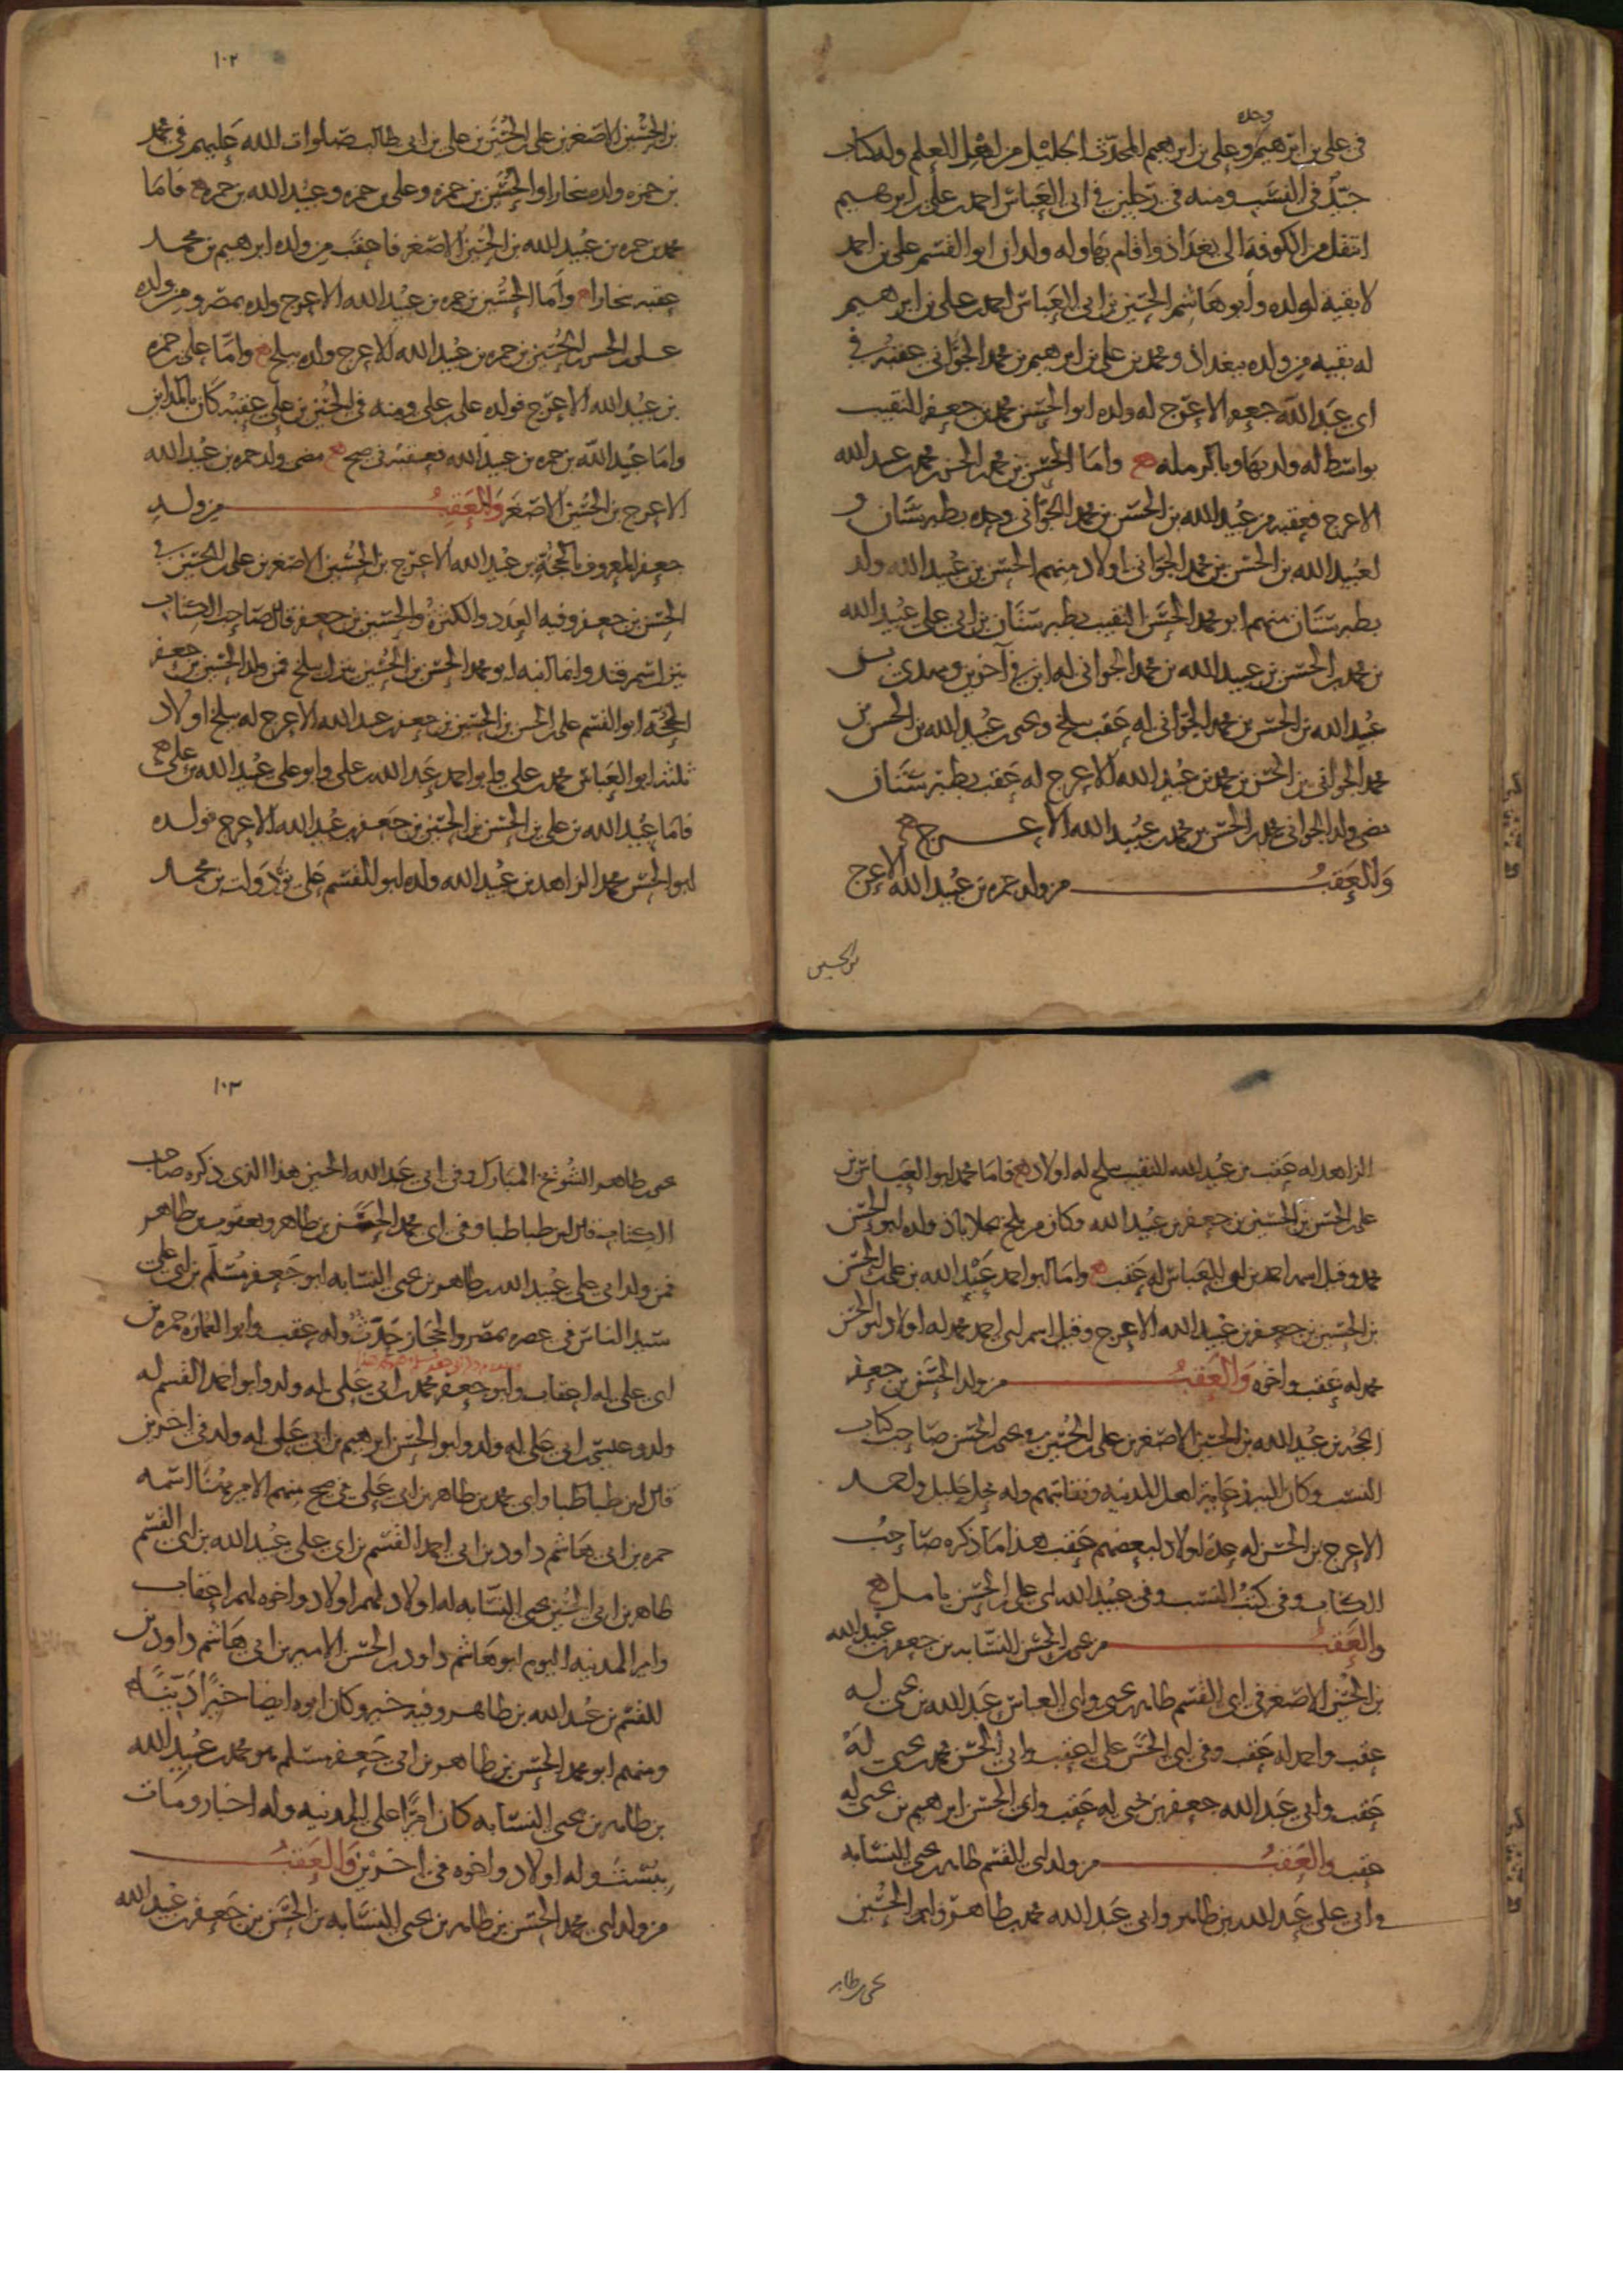 وحده
في علي بن ابرهيم وعلي بن ابرهيم المحدّث الجليل من اهل العلم وله كتاب
جيّد في النسب ومنه في رجلين في ابي العباس احمد بن علي بن ابرهيم
انتقل من الكوفة الى بغداذ واقام بها وله ولدان ابو القسم علي بن احمد
لا بقية لولده وابو هاشم الحسين بن ابي العباس احمد بن علي بن ابرهيم
له بقيه من ولده ببغداد ومحمد بن علي بن ابرهيم بن محمد الجوّاني عقبه في
ابي عبد الله جعفر الاعرج له ولده ابو الحسن محمد بن جعفر النقيب
بواسط له ولد بها وامّا الحسن بن محمد بن الحسن بن محمد بن عبيد الله
الاعرج فعقبه من عبيد الله بن الحسن بن محمد الجوّاني وحده بطبرستان و
لعبيد الله بن الحسن بن محمد الجواني اولاد منهم الحسن بن عبيد الله ولد
بطبرستان منهم ابو محمد الحسن النقيب بطبرستان بن ابي علي عبيد الله
بن محمد بن الحسن بن عبيد الله بن محمد الجواني له ابن في آخرين ومهدي بن
عبيد الله بن الحسن بن محمد الجوّاني له عقب ببلخ ويحيى بن عبيد الله بن الحسن بن
محمد الجواني بن الحسن بن محمد بن عبيد الله الاعرج له عقب بطبرستان
مضى ولد الجواني محمد بن الحسن بن محمد بن عبيد الله الاعرج
وَالعَقِبُ من ولد حمزه بن عبيد الله الاعرج
بن الحسين
١٠٢
بن الحسين الاصغر بن علي بن الحسين بن علي بن ابي طالب صلوات الله عليهم في محمد
بن حمزه ولده بخارا والحسين بن حمزه وعلي بن حمزه وعبيد الله بن حمزه فامّا
محمد بن حمزه بن عبيد الله بن الحسين الاصغر فاعقب من ولده ابرهيم بن محمد
عقبه بخارا وامّا الحسين بن حمزه بن عبيد الله الاعرج ولده بمصر ومن ولده
علي بن الحسن بن الحسين بن حمزه بن عبيد الله الاعرج ولده ببلخ وامّا علي بن حمزه
بن عبيد الله الاعرج فولده علي بن علي ومنه في الحسين بن علي عقبه كان بالمداين
وامّا عبيد الله بن حمزه بن عبيد الله فعقبه في صح مضى ولد حمزه بن عبيد الله
الاعرج بن الحسين الاصغر وَالعَقِبُ من ولد
جعفر المعروف بالحجّة بن عبيد الله الاعرج بن الحسين الاصغر بن علي بن الحسين في
الحسن بن جعفر وفيه العدد والكثرة والحسين بن جعفر قال صاحب الكتاب
بنزل سمرقند وانما ابنه ابو محمد الحسن بن الحسين بنزل ببلخ فمن ولد الحسين بن جعفر
الحجّة ابو القسم علي بن الحسن بن الحسين بن جعفر بن عبيد الله الاعرج له ببلخ اولاد
ثلثه ابو العباس محمد بن علي وابو احمد عبد الله بن علي وابو علي عبيد الله بن علي
فامّا عبيد الله بن علي بن الحسن بن الحسين بن جعفر بن عبيد الله الاعرج فولده
ابو الحسن محمد الزاهد بن عبيد الله ولده ابو القسم علي بن محمد
الزاهد له عقب بن عبيد الله النقيب ببلخ له اولاد فامّا محمد ابو العباس بن
علي بن الحسن بن الحسين بن جعفر بن عبيد الله وكان من بلخ ولده ابو الحسن
محمد وقيل اسمه احمد بن ابي العباس له عقب وامّا ابو احمد عبد الله بن علي بن الحسن
بن الحسين بن جعفر بن عبيد الله الاعرج وقيل اسم ابي احمد محمد له اولاد ابو الحسن
محمد له عقب واخوه وَالعَقِبُ من ولد الحسن بن جعفر
الحجّه بن عبيد الله بن الحسين الاصغر بن علي بن الحسين في يحيى بن الحسن صاحب كتاب
النسب وكان اهل المدينه وله جليل واحمد
الاعرج بن الحسن له عدة اولاد لبعضهم عقب هذا ما ذكره صاحب
الكتاب وفي كتب النسب وفي عبيد الله ابي علي بن الحسن بامل
وَالعَقِبُ من يحيى بن الحسن النسّابه بن جعفر بن عبيد الله
بن الحسين الاصغر في ابي القسم طاهر بن يحيى وابي العباس عبد الله بن يحيى له
عقب واحمد له عقب وفي ابي الحسن علي له عقب وابي الحسن محمد بن يحيى له
عقب وابي عبد الله جعفر بن يحيى له عقب وابي الحسن ابرهيم بن يحيى له
عقب وَالعَقِبُ من ولد ابي القسم طاهر بن يحيى النسّابه
في ابي علي عبد الله بن طاهر وابي عبد الله محمد بن طاهر وابي الحسين
يحيى بن طاهر
١٠٣
يحيى بن طاهر الشويخ المبارك وفي ابي عبد الله الحسين هذا الذي ذكره صاحب
الكتاب قال ابن طباطبا وفي ابي محمد الحسن بن طاهر ويعقوب بن طاهر
فمن ولد ابي علي عبيد الله بن طاهر بن يحيى النسّابه ابو جعفر مسلّم بن ابي علي
سيد الناس في عصره بمصر والحجاز حدّث وله عقب وابو العمّاره حمزه بن
ابي علي له اعقاب وابو جعفر محمد بن ابي علي له ولد وابو احمد القسم له
ولد وعيسى بن ابي علي له ولد وابو الحسن ابرهيم بن ابي علي له ولد في اخرين
قال ابن طباطبا وابي محمد بن طاهر بن ابي علي في صح منهم الامير مهنّا اسمه
حمزه بن ابي هاشم داود بن ابي احمد القسم بن ابي علي عبيد الله بن ابي القسم
طاهر بن ابي الحسين يحيى النسّابه له اولاد لهم اولاد واخوه لهم اعقاب
وامير المدينه اليوم ابو هاشم داود بن الحسن الامير بن ابي هاشم داود بن
القسم بن عبيد الله بن طاهر وفيه خير وكان ابوه ايضا خيّرا ديّنا
ومنهم ابو محمد الحسن بن طاهر بن ابي جعفر مسلم هو محمد بن عبيد الله
بن طاهر بن يحيى النسّابه كان اميرًا على المدينه وله اخبار ومات
ببُست وله اولاد واخوه في اخرين وَالعَقِبُ
من ولد ابي محمد الحسن بن طاهر بن يحيى النسّابه بن الحسن بن جعفر بن عبيد الله